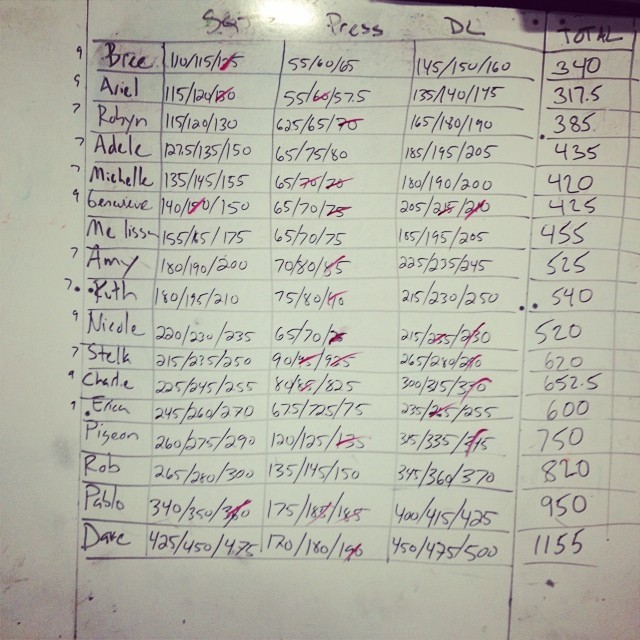 Press DL TOTAL
9 Bree 110/115/125 55/60/65 145/150/160 340
9 Ariel 115/120/130 55/60/57.5 135/140/145 317.5
7 Robyn 115/120/130 625/65/70 165/180/190 385
7 Adele 127.5/135/150 65/75/80 185/195/205 435
7 Michelle 135/145/155 65/70/70 180/190/200 420
9 Genevieve 140/150/150 65/70/75 205/215/210 425
Melissa 155/165/175 65/70/75 185/195/205 455
7 Amy 180/190/200 70/80/85 225/235/245 525
7 Ruth 180/195/210 75/80/90 215/230/250 540
9 Nicole 220/230/235 65/70/75 215/225/230 520
7 Stella 215/235/250 90/95/925 265/280/290 620
9 Charlie 225/245/255 80/85/825 300/315/330 652.5
7 Erica 245/260/270 675/725/75 235/255/255 600
Pigeon 260/275/290 120/125/135 315/335/345 750
Rob 265/280/300 135/145/150 345/360/370 820
Pablo 340/350/360 175/185/185 400/415/425 950
Dave 425/450/475 170/180/190 450/475/500 1155